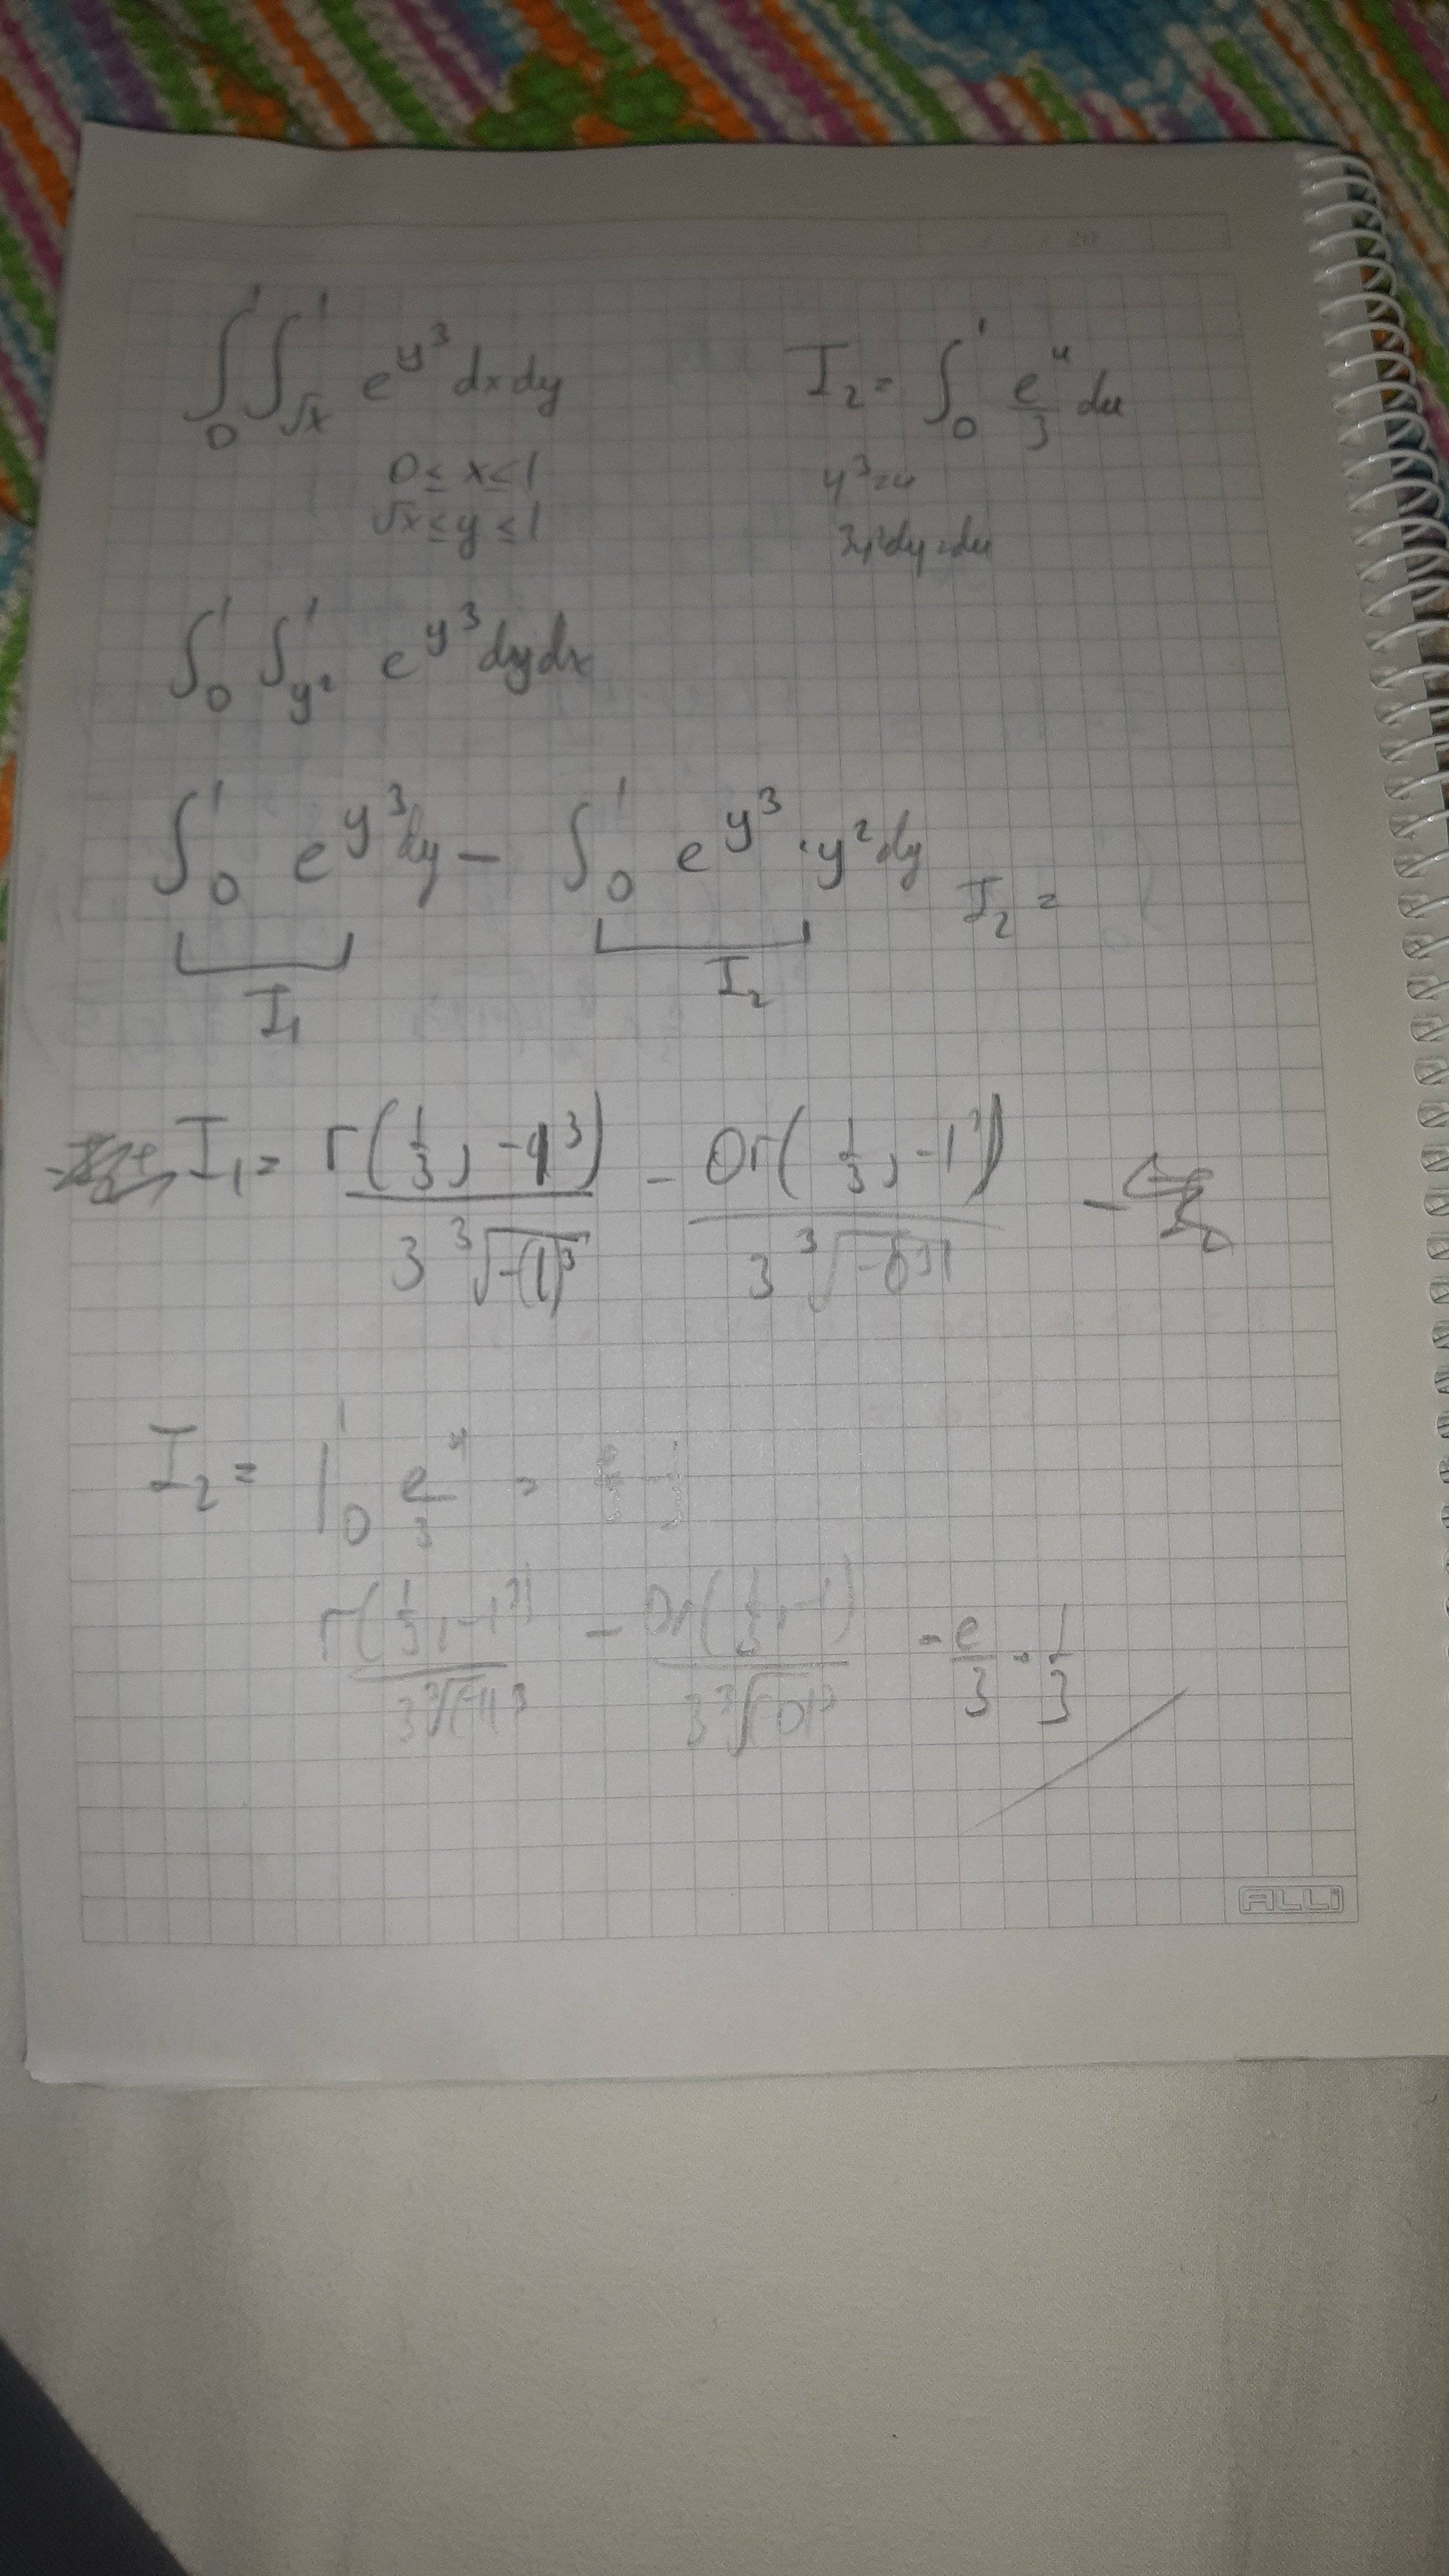 20
∫₀¹ ∫_√x¹ e^y³ dxdy
0 ≤ x ≤ 1
√x ≤ y ≤ 1
I₂ = ∫₀¹ e^u/3 du
y³=u
3y²dy=du
∫₀¹ ∫_y²¹ e^y³ dydx
∫₀¹ e^y³ dy - ∫₀¹ e^y³ · y² dy
I₁
I₂
I₂ =
I₁ = Γ(1/3, -1³)/3 ³√-(1)³ - 0Γ(1/3, -1³)/3 ³√-0³
I₂ = |₀¹ e^u/3 =
Γ(1/3, -1³)/3 ³√(-1)³ - 0Γ(1/3, -1)/3 ³√(-0)³ - e/3 - 1/3
ALLi